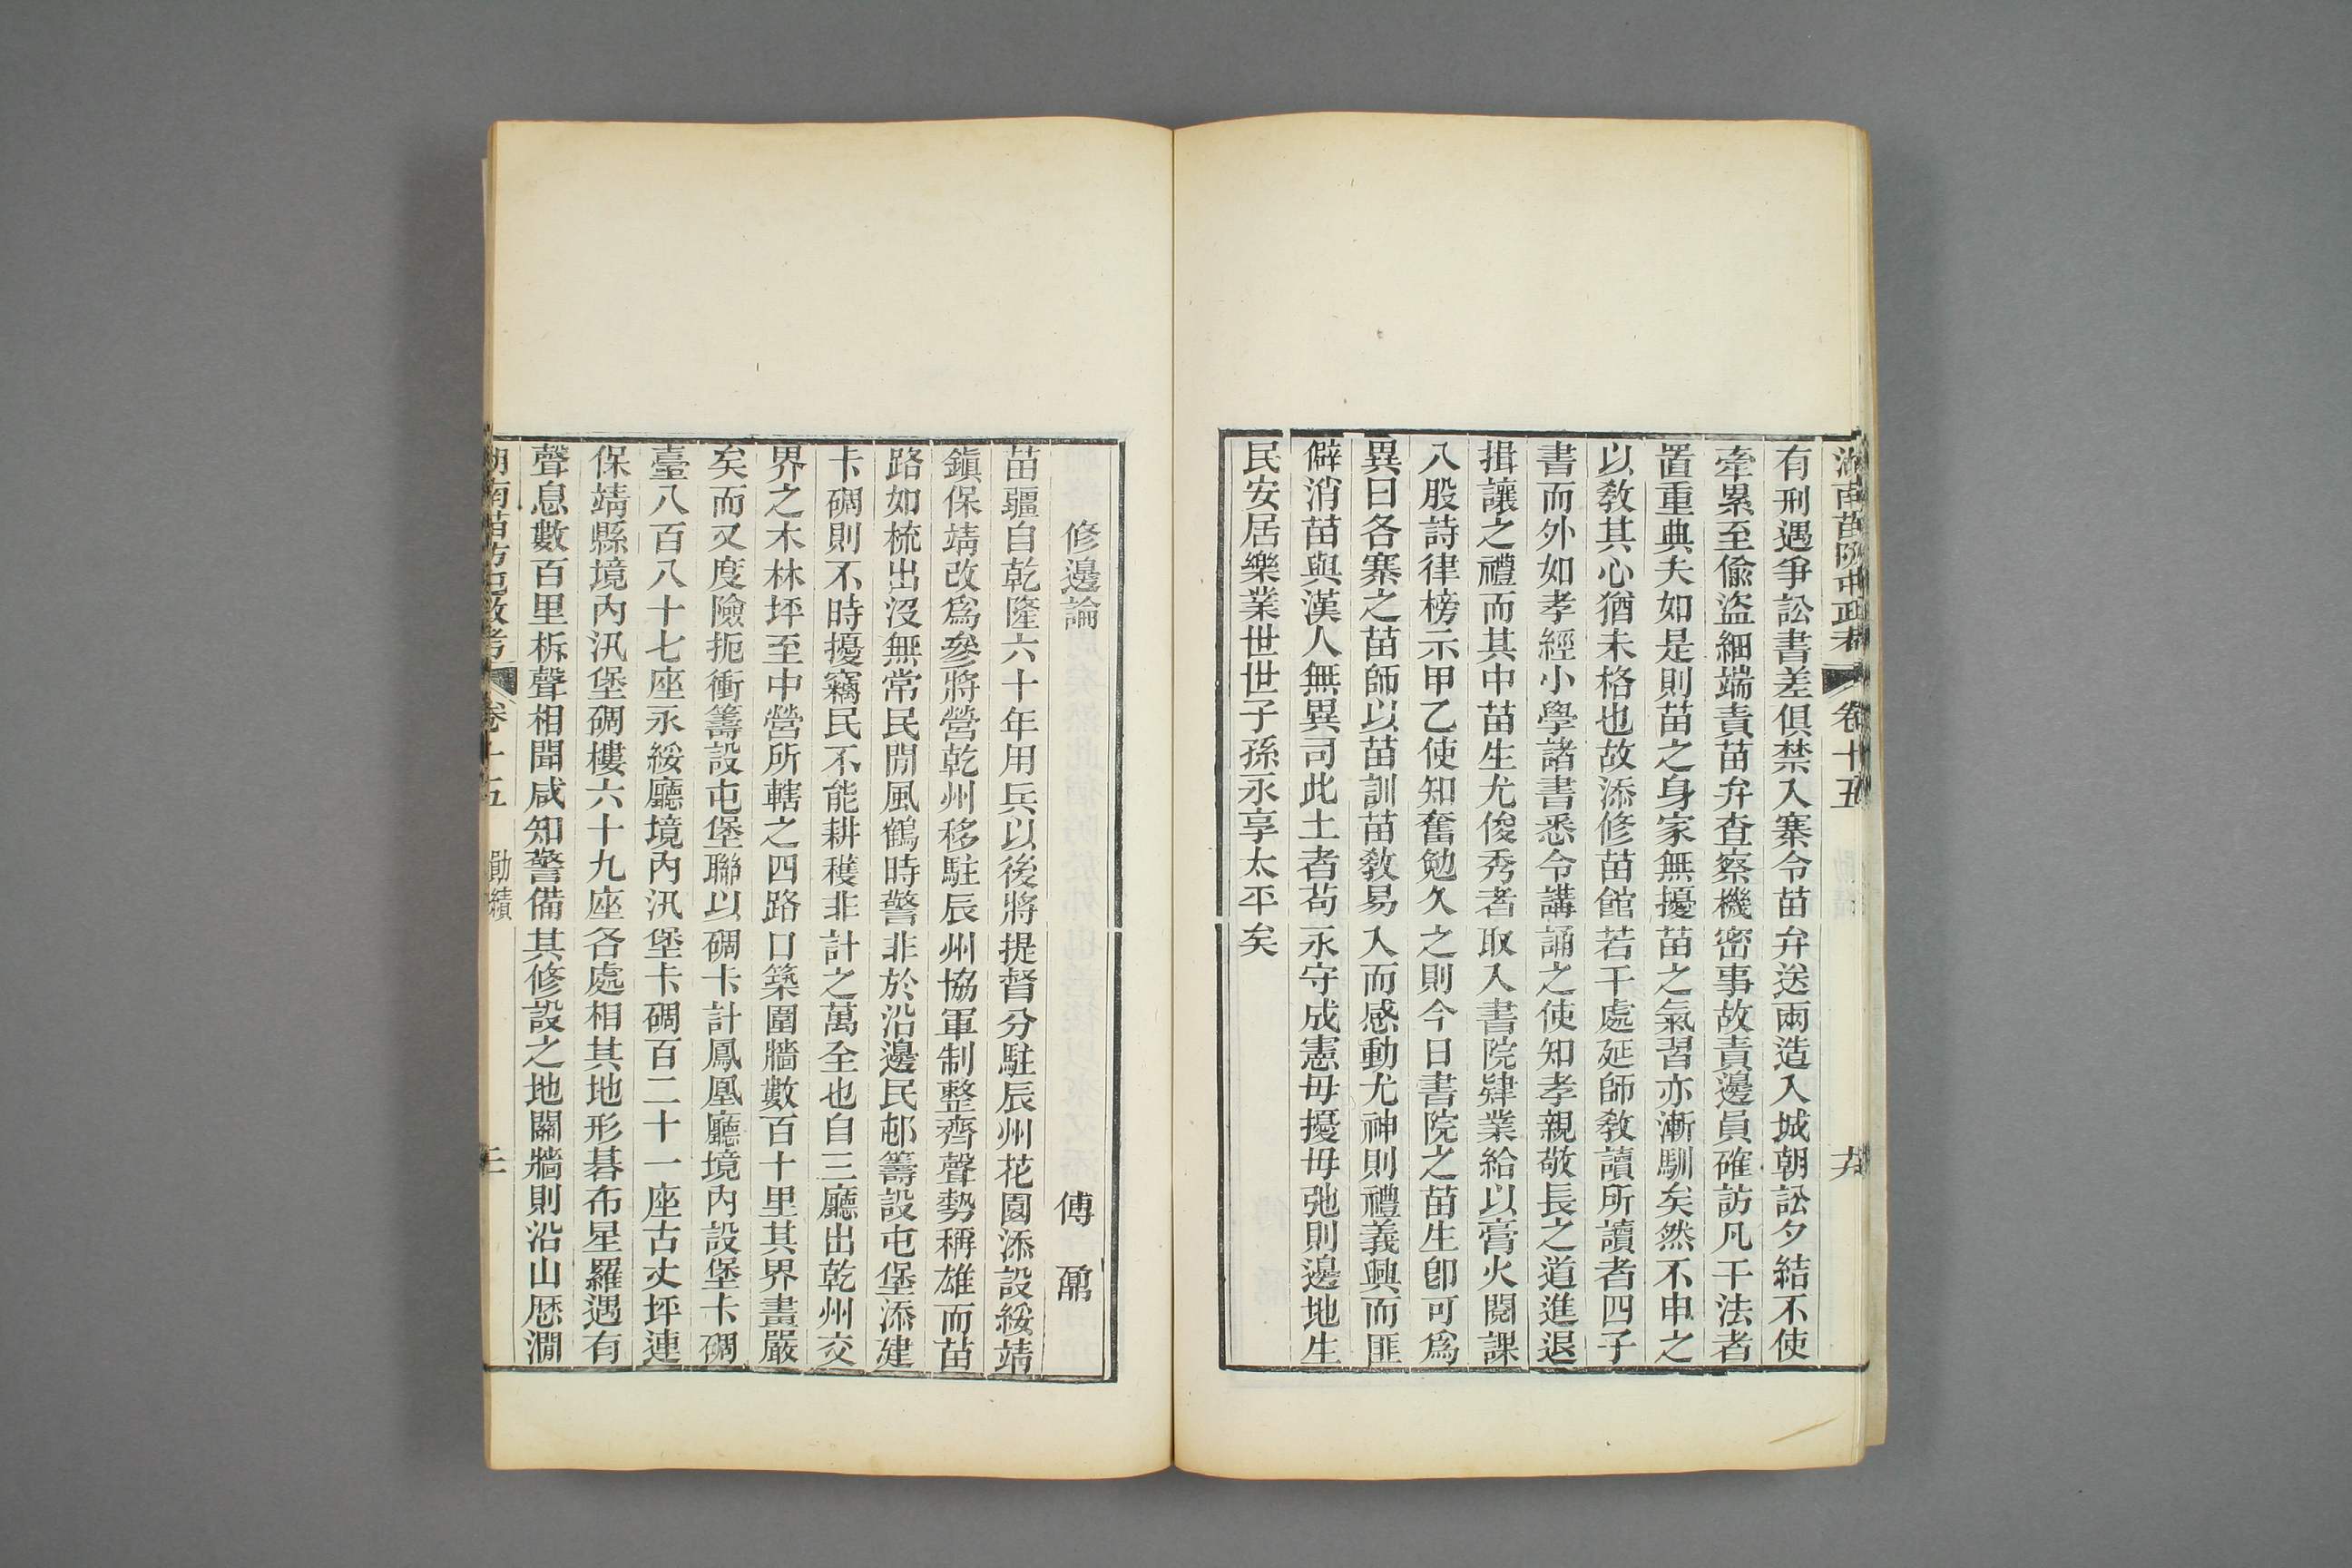 湖南苗防屯政考 卷十五
有刑遇爭訟書差俱禁入寨令苗弁送兩造入城朝訟夕結不使
牽累至偸盜細端責苗弁查察機密事故責邊員確訪凡干法者
置重典夫如是則苗之身家無擾苗之氣習亦漸馴矣然不申之
以敎其心猶未格也故添修苗館若干處延師敎讀所讀者四子
書而外如孝經小學諸書悉令講誦之使知孝親敬長之道進退
揖讓之禮而其中苗生尤俊秀者取入書院肄業給以膏火閱課
八股詩律榜示甲乙使知奮勉久之則今日書院之苗生卽可爲
異日各寨之苗師以苗訓苗敎易入而感動尤神則禮義興而匪
僻消苗與漢人無異司此土者苟永守成憲毋擾毋弛則邊地生
民安居樂業世世子孫永享太平矣
修邊論 傅鼐
苗疆自乾隆六十年用兵以後將提督分駐辰州花園添設綏靖
鎭保靖改爲參將營乾州移駐辰州協軍制整齊聲勢稱雄而苗
路如梳出沒無常民閒風鶴時警非於沿邊民邨籌設屯堡添建
卡碉則不時擾竊民不能耕穫非計之萬全也自三廳出乾州交
界之木林坪至中營所轄之四路口築圍牆數百十里其界畫嚴
矣而又度險扼衝籌設屯堡聯以碉卡計鳳凰廳境內設堡卡碉
臺八百八十七座永綏廳境內汛堡卡碉百二十一座古丈坪連
保靖縣境內汛堡碉樓六十九座各處相其地形碁布星羅遇有
聲息數百里柝聲相聞咸知警備其修設之地關牆則沿山歷澗
湖南苗防屯政考 卷十五 勛績